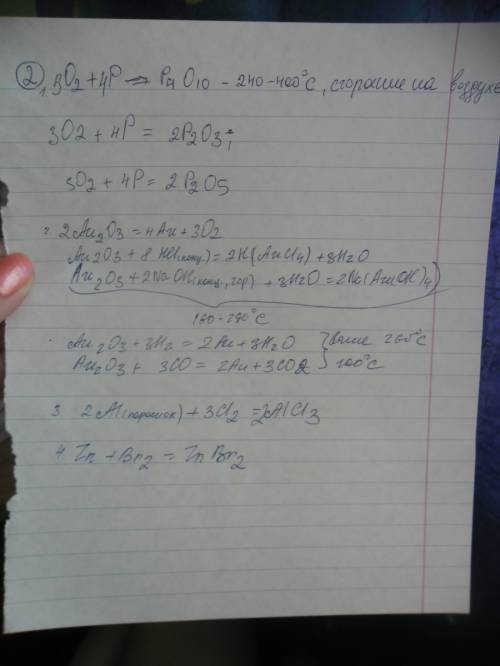 2 1. 5O2 + 4P → P4O10 - 240-400°C, сгорание на воздухе
3O2 + 4P = 2P2O3;
5O2 + 4P = 2P2O5
2. 2Au2O3 = 4Au + 3O2
Au2O3 + 8HCl(конц.) = 2H(AuCl4) + 3H2O
Au2O3 + 2NaOH(конц., гор) + 3H2O = 2Na(Au(OH)4)
160-290°C
Au2O3 + 3H2 = 2Au + 3H2O } выше 265°C
Au2O3 + 3CO = 2Au + 3CO2 } 200°C
3. 2Al(порошок) + 3Cl2 = 2AlCl3
4. Zn + Br2 = ZnBr2